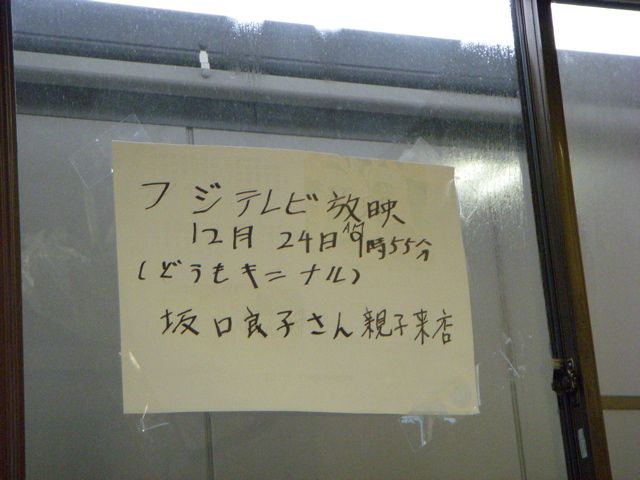 フジテレビ放映
12月24日AM9時55分
(どうもキニナル)
坂口良子さん親子来店